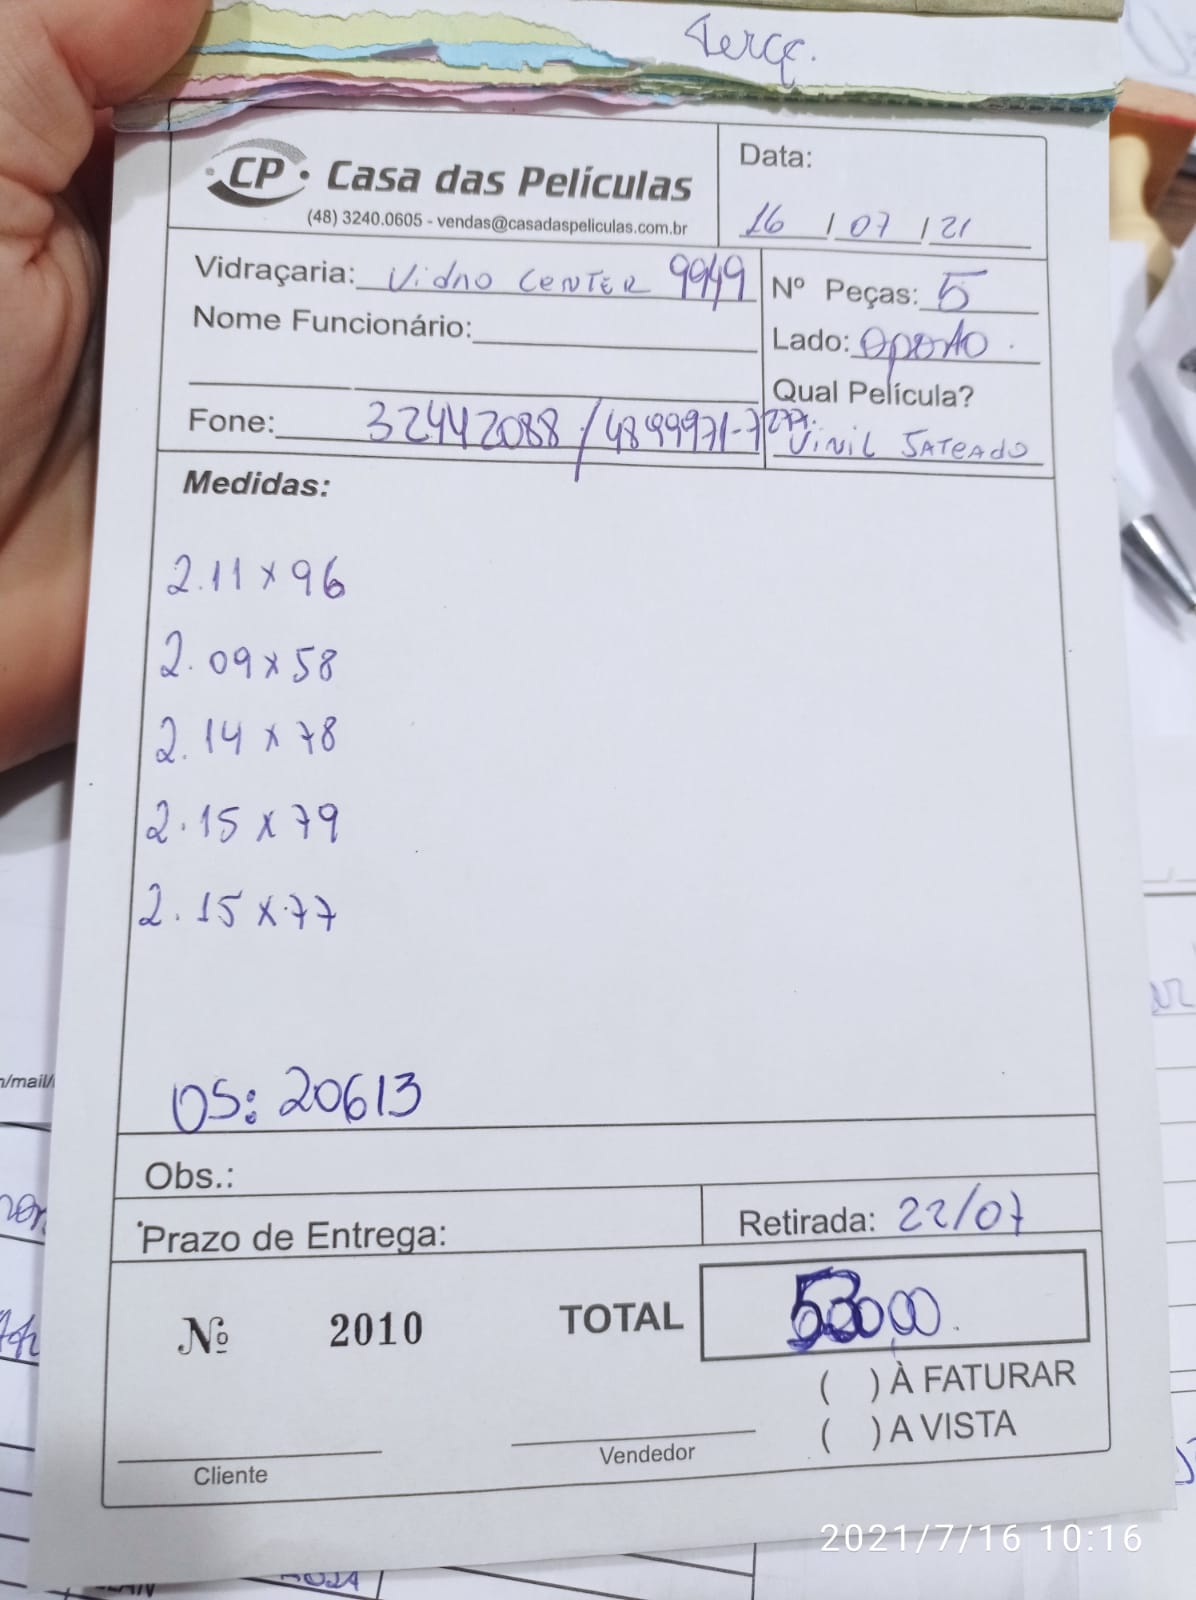 Terça.
CP Casa das Películas
(48) 3240.0605 - vendas@casadaspeliculas.com.br
Data:
16 / 07 / 21
Vidraçaria: Vidro CENTER 9949
Nome Funcionário:
Fone: 32442088 / 4899971-7277.
Nº Peças: 5
Lado: oposto.
Qual Película?
Vinil JATEADO
Medidas:
2.11 x 96
2.09 x 58
2.14 x 78
2.15 x 79
2.15 x 77
OS: 20613
Obs.:
Prazo de Entrega:
Retirada: 22/07
Nº 2010
TOTAL
( ) À FATURAR
( ) A VISTA
Cliente
Vendedor
2021/7/16 10:16